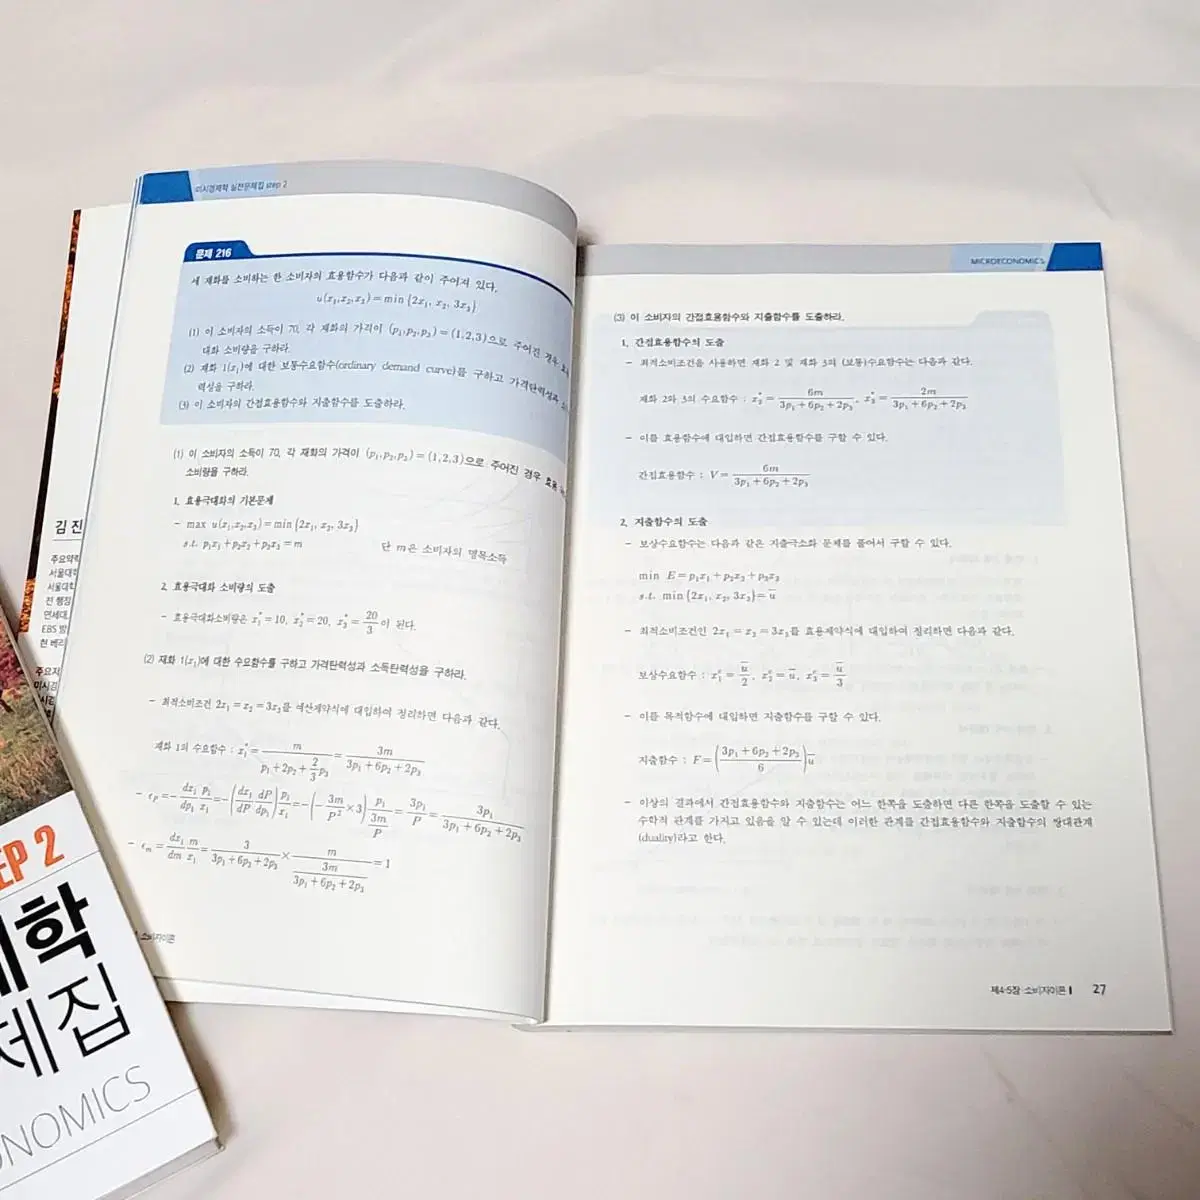 미시경제학 실전문제집 step 2
문제 216
세 재화를 소비하는 한 소비자의 효용함수가 다음과 같이 주어져 있다.
u(x₁,x₂,x₃)=min{2x₁, x₂, 3x₃}
(1) 이 소비자의 소득이 70, 각 재화의 가격이 (p₁,p₂,p₃)=(1,2,3)으로 주어진 경우 효용
대화 소비량을 구하라.
(2) 재화 1(x₁)에 대한 보통수요함수(ordinary demand curve)를 구하고 가격탄력성과
력성을 구하라.
(3) 이 소비자의 간접효용함수와 지출함수를 도출하라.
(1) 이 소비자의 소득이 70, 각 재화의 가격이 (p₁,p₂,p₃)=(1,2,3)으로 주어진 경우 효용
소비량을 구하라.
1. 효용극대화의 기본문제
- max u(x₁,x₂,x₃)=min{2x₁, x₂, 3x₃}
s.t. p₁x₁+p₂x₂+p₃x₃=m 단 m은 소비자의 명목소득
2. 효용극대화 소비량의 도출
- 효용극대화소비량은 x₁*=10, x₂*=20, x₃*=20/3이 된다.
(2) 재화 1(x₁)에 대한 수요함수를 구하고 가격탄력성과 소득탄력성을 구하라.
- 최적소비조건 2x₁=x₂=3x₃를 예산제약식에 대입하여 정리하면 다음과 같다.
재화 1의 수요함수 : x₁*=m/(p₁+2p₂+(2/3)p₃)=3m/(3p₁+6p₂+2p₃)
- ϵ_P=-(dx₁/dp₁)(p₁/x₁)=-((dx₁/dP)(dP/dp₁))(p₁/x₁)=-(-(3m/P²)×3)(p₁/(3m/P))=3p₁/P=3p₁/(3p₁+6p₂+2p₃)
- ϵ_m=(dx₁/dm)(m/x₁)=3/(3p₁+6p₂+2p₃)×m/(3m/(3p₁+6p₂+2p₃))=1
소비자이론
MICROECONOMICS
(3) 이 소비자의 간접효용함수와 지출함수를 도출하라.
1. 간접효용함수의 도출
- 최적소비조건을 사용하면 재화 2 및 재화 3의 (보통)수요함수는 다음과 같다.
재화 2와 3의 수요함수 : x₂*=6m/(3p₁+6p₂+2p₃), x₃*=2m/(3p₁+6p₂+2p₃)
- 이를 효용함수에 대입하면 간접효용함수를 구할 수 있다.
간접효용함수 : V=6m/(3p₁+6p₂+2p₃)
2. 지출함수의 도출
- 보상수요함수는 다음과 같은 지출극소화 문제를 풀어서 구할 수 있다.
min E=p₁x₁+p₂x₂+p₃x₃
s.t. min{2x₁, x₂, 3x₃}=ū
- 최적소비조건인 2x₁=x₂=3x₃를 효용제약식에 대입하여 정리하면 다음과 같다.
보상수요함수 : x₁ᶜ=ū/2, x₂ᶜ=ū, x₃ᶜ=ū/3
- 이를 목적함수에 대입하면 지출함수를 구할 수 있다.
지출함수 : E=((3p₁+6p₂+2p₃)/6)ū
- 이상의 결과에서 간접효용함수와 지출함수는 어느 한쪽을 도출하면 다른 한쪽을 도출할 수 있는
수학적 관계를 가지고 있음을 알 수 있는데 이러한 관계를 간접효용함수와 지출함수의 쌍대관계
(duality)라고 한다.
제4·5장 소비자이론 27
김 진
주요약력
서울대학
서울대학
전 행정
연세대
EBS 방
현 베리
주요저
미시경
EP 2
제학
제집
ONOMICS